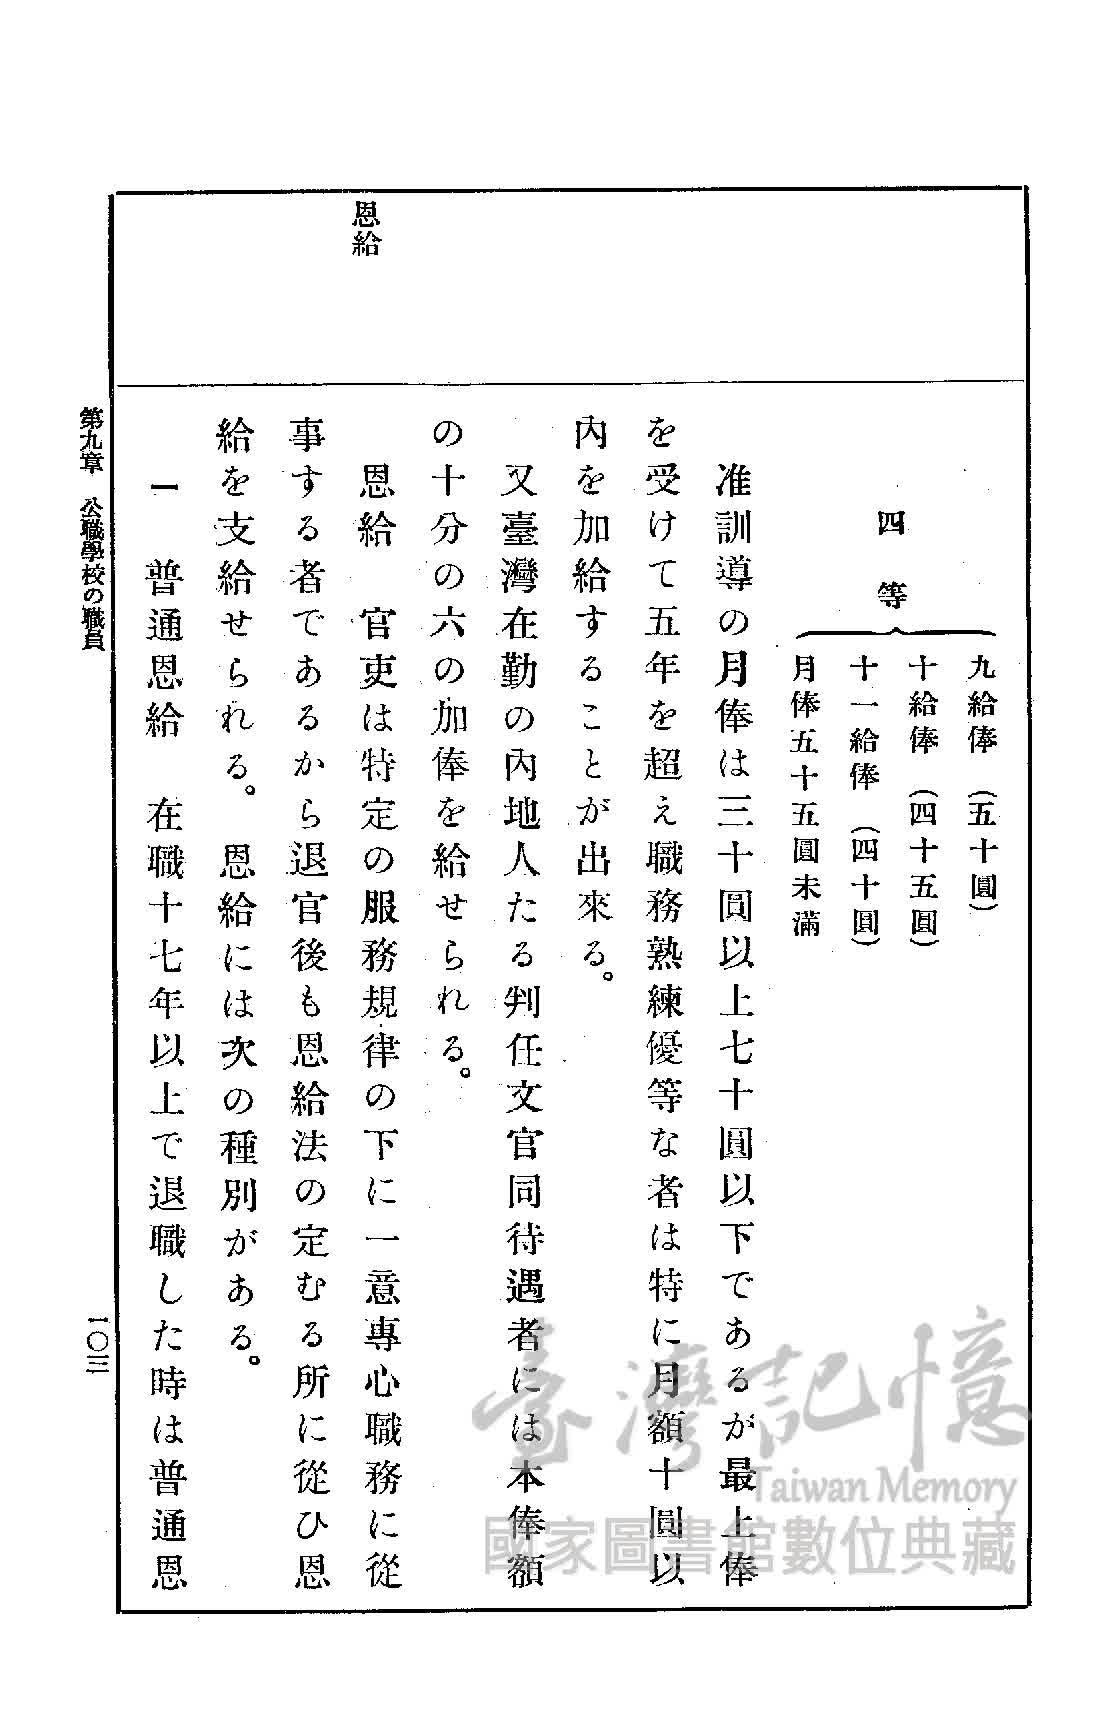 恩給
四等
九給俸（五十圓）
十給俸（四十五圓）
十一給俸（四十圓）
月俸五十五圓未滿
准訓導の月俸は三十圓以上七十圓以下であるが最上俸
を受けて五年を超え職務熟練優等な者は特に月額十圓以
內を加給することが出來る。
又臺灣在勤の內地人たる判任文官同待遇者には本俸額
の十分の六の加俸を給せられる。
恩給　官吏は特定の服務規律の下に一意專心職務に從
事する者であるから退官後も恩給法の定むる所に從ひ恩
給を支給せられる。恩給には次の種別がある。
一　普通恩給　在職十七年以上で退職した時は普通恩
第九章　公職學校の職員
一〇三
臺灣記憶
Taiwan Memory
國家圖書館數位典藏